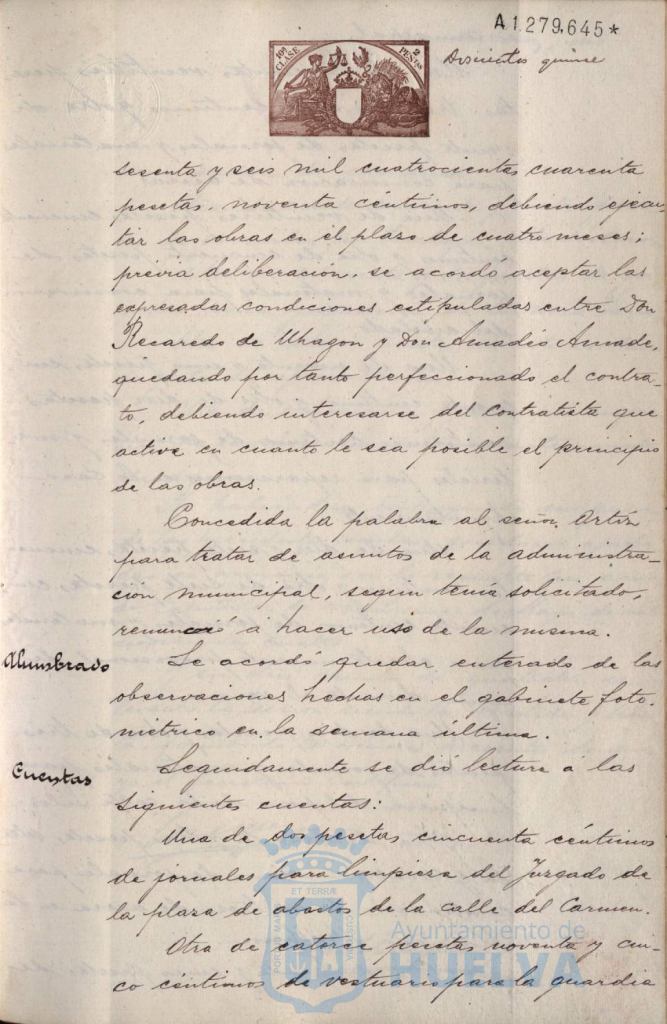 A1.279.645*
10ª CLASE 2 PESETAS
Doscientos quince
sesenta y seis mil cuatrocientas cuarenta
pesetas, noventa céntimos, debiendo ejecu-
tar las obras en el plazo de cuatro meses;
prévia deliberación, se acordó aceptar las
expresadas condiciones estipuladas entre Don
Recaredo de Uhagon y Don Amadeo Amade,
quedando por tanto perfeccionado el contra-
to, debiendo interesarse del contratista que
active en cuanto le sea posible el principio
de las obras.
Concedida la palabra al señor
para tratar de asuntos de la administra-
ción municipal, según tenía solicitado,
renunció á hacer uso de la misma.
Alumbrado
Se acordó quedar enterado de las
observaciones hechas en el gabinete foto-
métrico en la semana última.
Cuentas
Seguidamente se dió lectura á las
siguientes cuentas:
Una de dos pesetas cincuenta céntimos
de jornales para limpieza del Juzgado de
la plaza de abastos de la calle del Carmen.
Otra de catorce pesetas noventa y cin-
co céntimos de vestuario para la guardia
PORTUS MARIS ET TERRÆ CUSTODIA
Ayuntamiento de
HUELVA